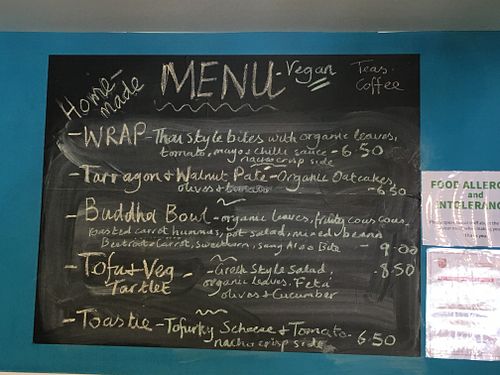 Home-made
MENU
Vegan
Teas
Coffee
- WRAP - Thai Style bites with organic leaves,
tomato, mayo + chilli sauce - 6.50
nacho crisp side
- Tarragon & Walnut Pate - Organic Oatcakes,
olives + tomato - 6.50
- Buddha Bowl - organic leaves, fruity cous cous,
roasted carrot hummus, pot salad, mixed beans
Beetroot + Carrot, sweetcorn, - 9.00
- Tofu + Veg - Greek Style Salad, 8.50
Tartlet organic leaves, Feta
olives + Cucumber
- Toastie - Tofurky Scheese + Tomato - 6.50
nacho crisp side
FOOD ALLERG
and
INTOLERANC